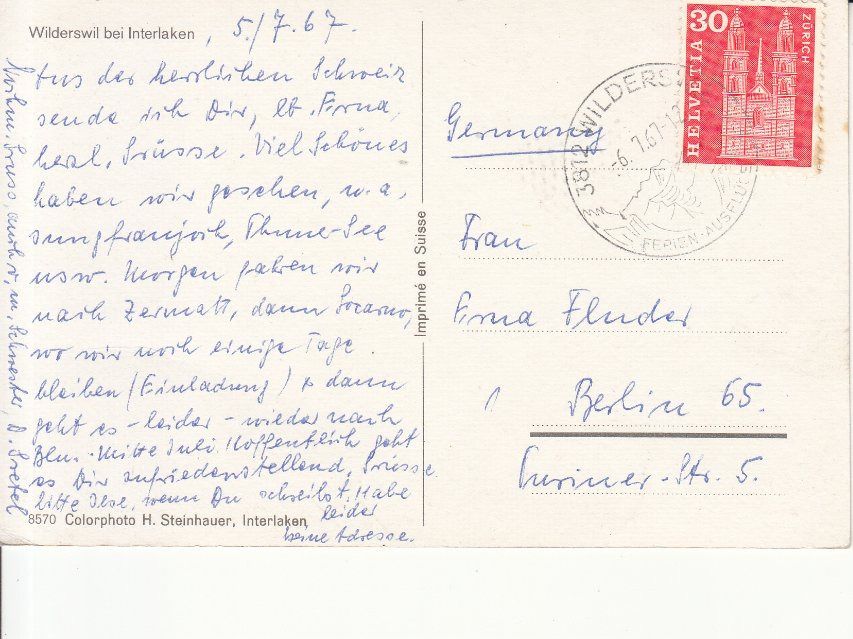 Wilderswil bei Interlaken , 5./7.67.
Aus der herrlichen Schweiz
sende ich Dir, lb. Erna,
herzl. Grüsse. Viel Schönes
haben wir gesehen, u.a.
Jungfraujoch, Thuner-See
usw. Morgen fahren wir
nach Zermatt, dann Locarno,
wo wir noch einige Tage
bleiben (Einladung) & dann
geht es - leider - wieder nach
Bln. - Mitte Juli. Hoffentlich geht
es Dir zufriedenstellend. Grüsse
bitte Ilse, wenn Du schreibst. Habe
leider
keine Adresse.
Nochm. Gruss, auch v. m. Schwester, D. Gretel
8570 Colorphoto H. Steinhauer, Interlaken
Imprimé en Suisse
30
HELVETIA
ZÜRICH
3812 WILDERS
-6.7.67-12
FERIEN-AUSFLÜGE
Germany
Frau
Erna Fluder
1 Berlin 65.
Turiner-Str. 5.